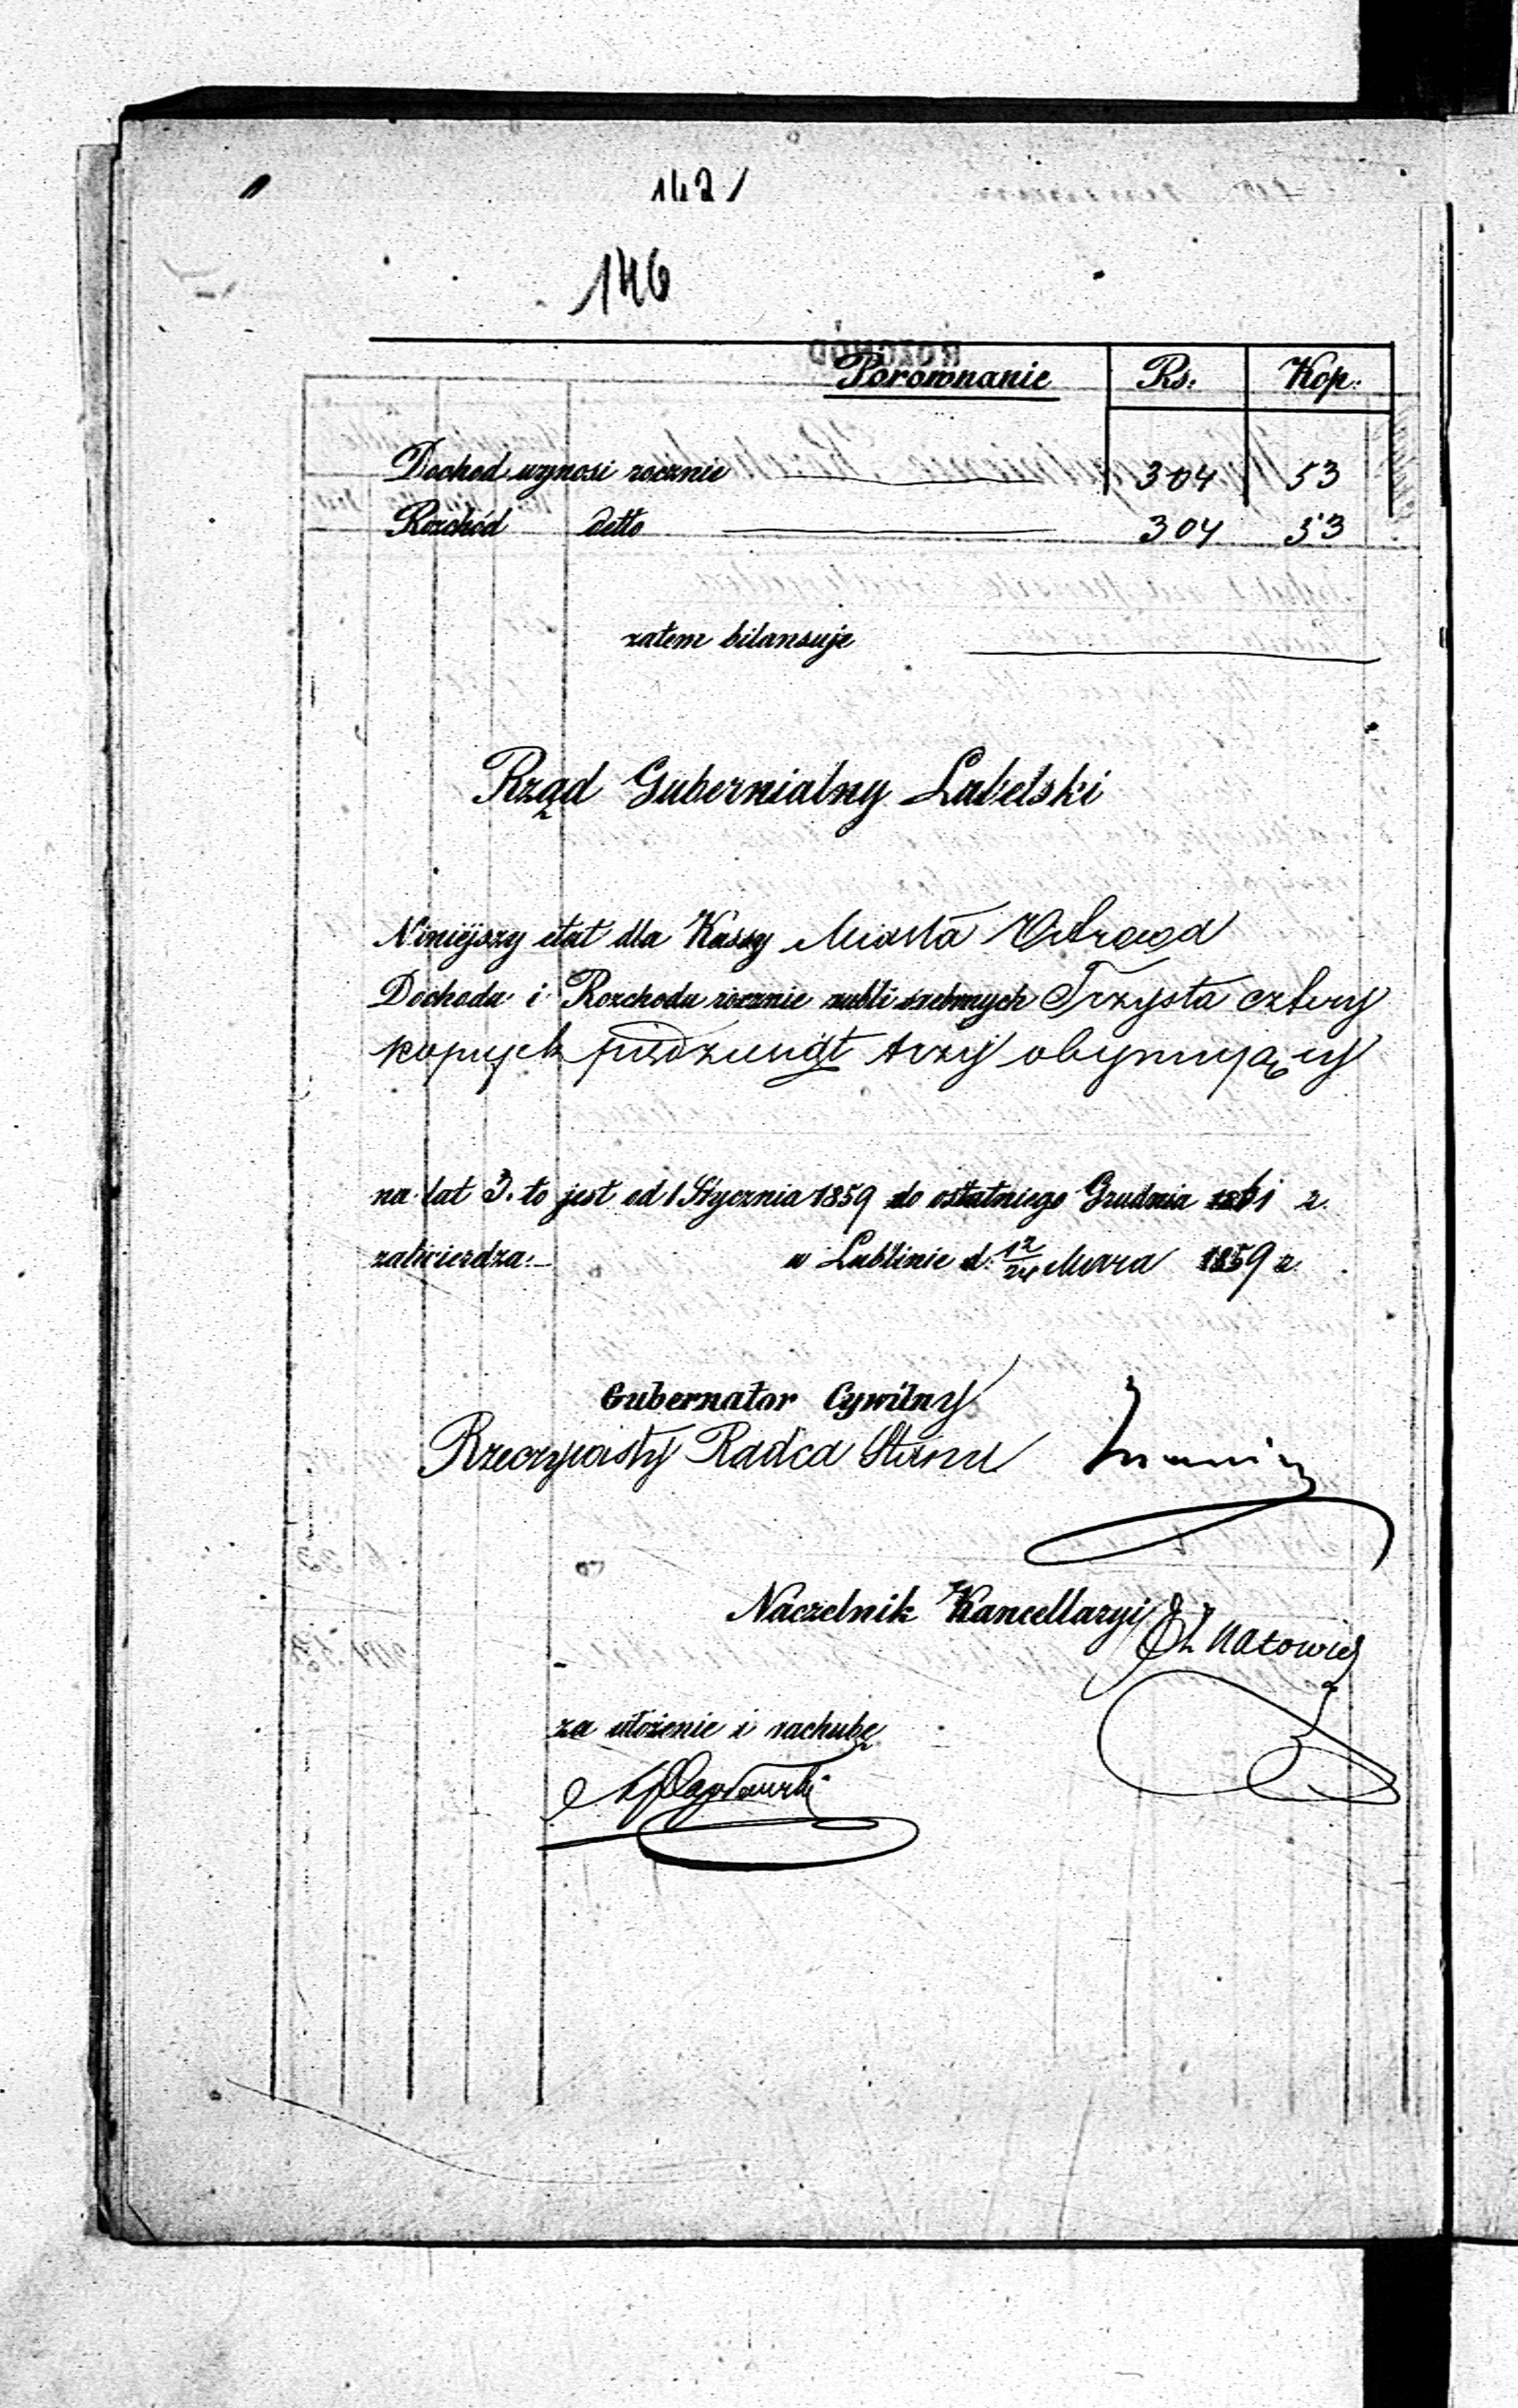 142/
146
Porownanie Rs. Kop.
Dochod wynosi rocznie 304 53
Rozchód detto 304 53
zatem bilansuje
Rząd Gubernialny Lubelski
Niniejszy etat dla Kassy Miasta
Dochodu i Rozchodu rocznie rubli srebrnych Trzysta cztery
kopiejek pięćdziesiąt trzy obejmujący
na lat 3. to jest od 1 Stycznia 1859 do ostatniego Grudnia 1861 r.
zatwierdza.- w Lublinie d. 12/24 Marca 1859 r.
Gubernator Cywilny
Rzeczywisty Radca Stanu
Naczelnik Kancellaryi
za ułożenie i rachubę